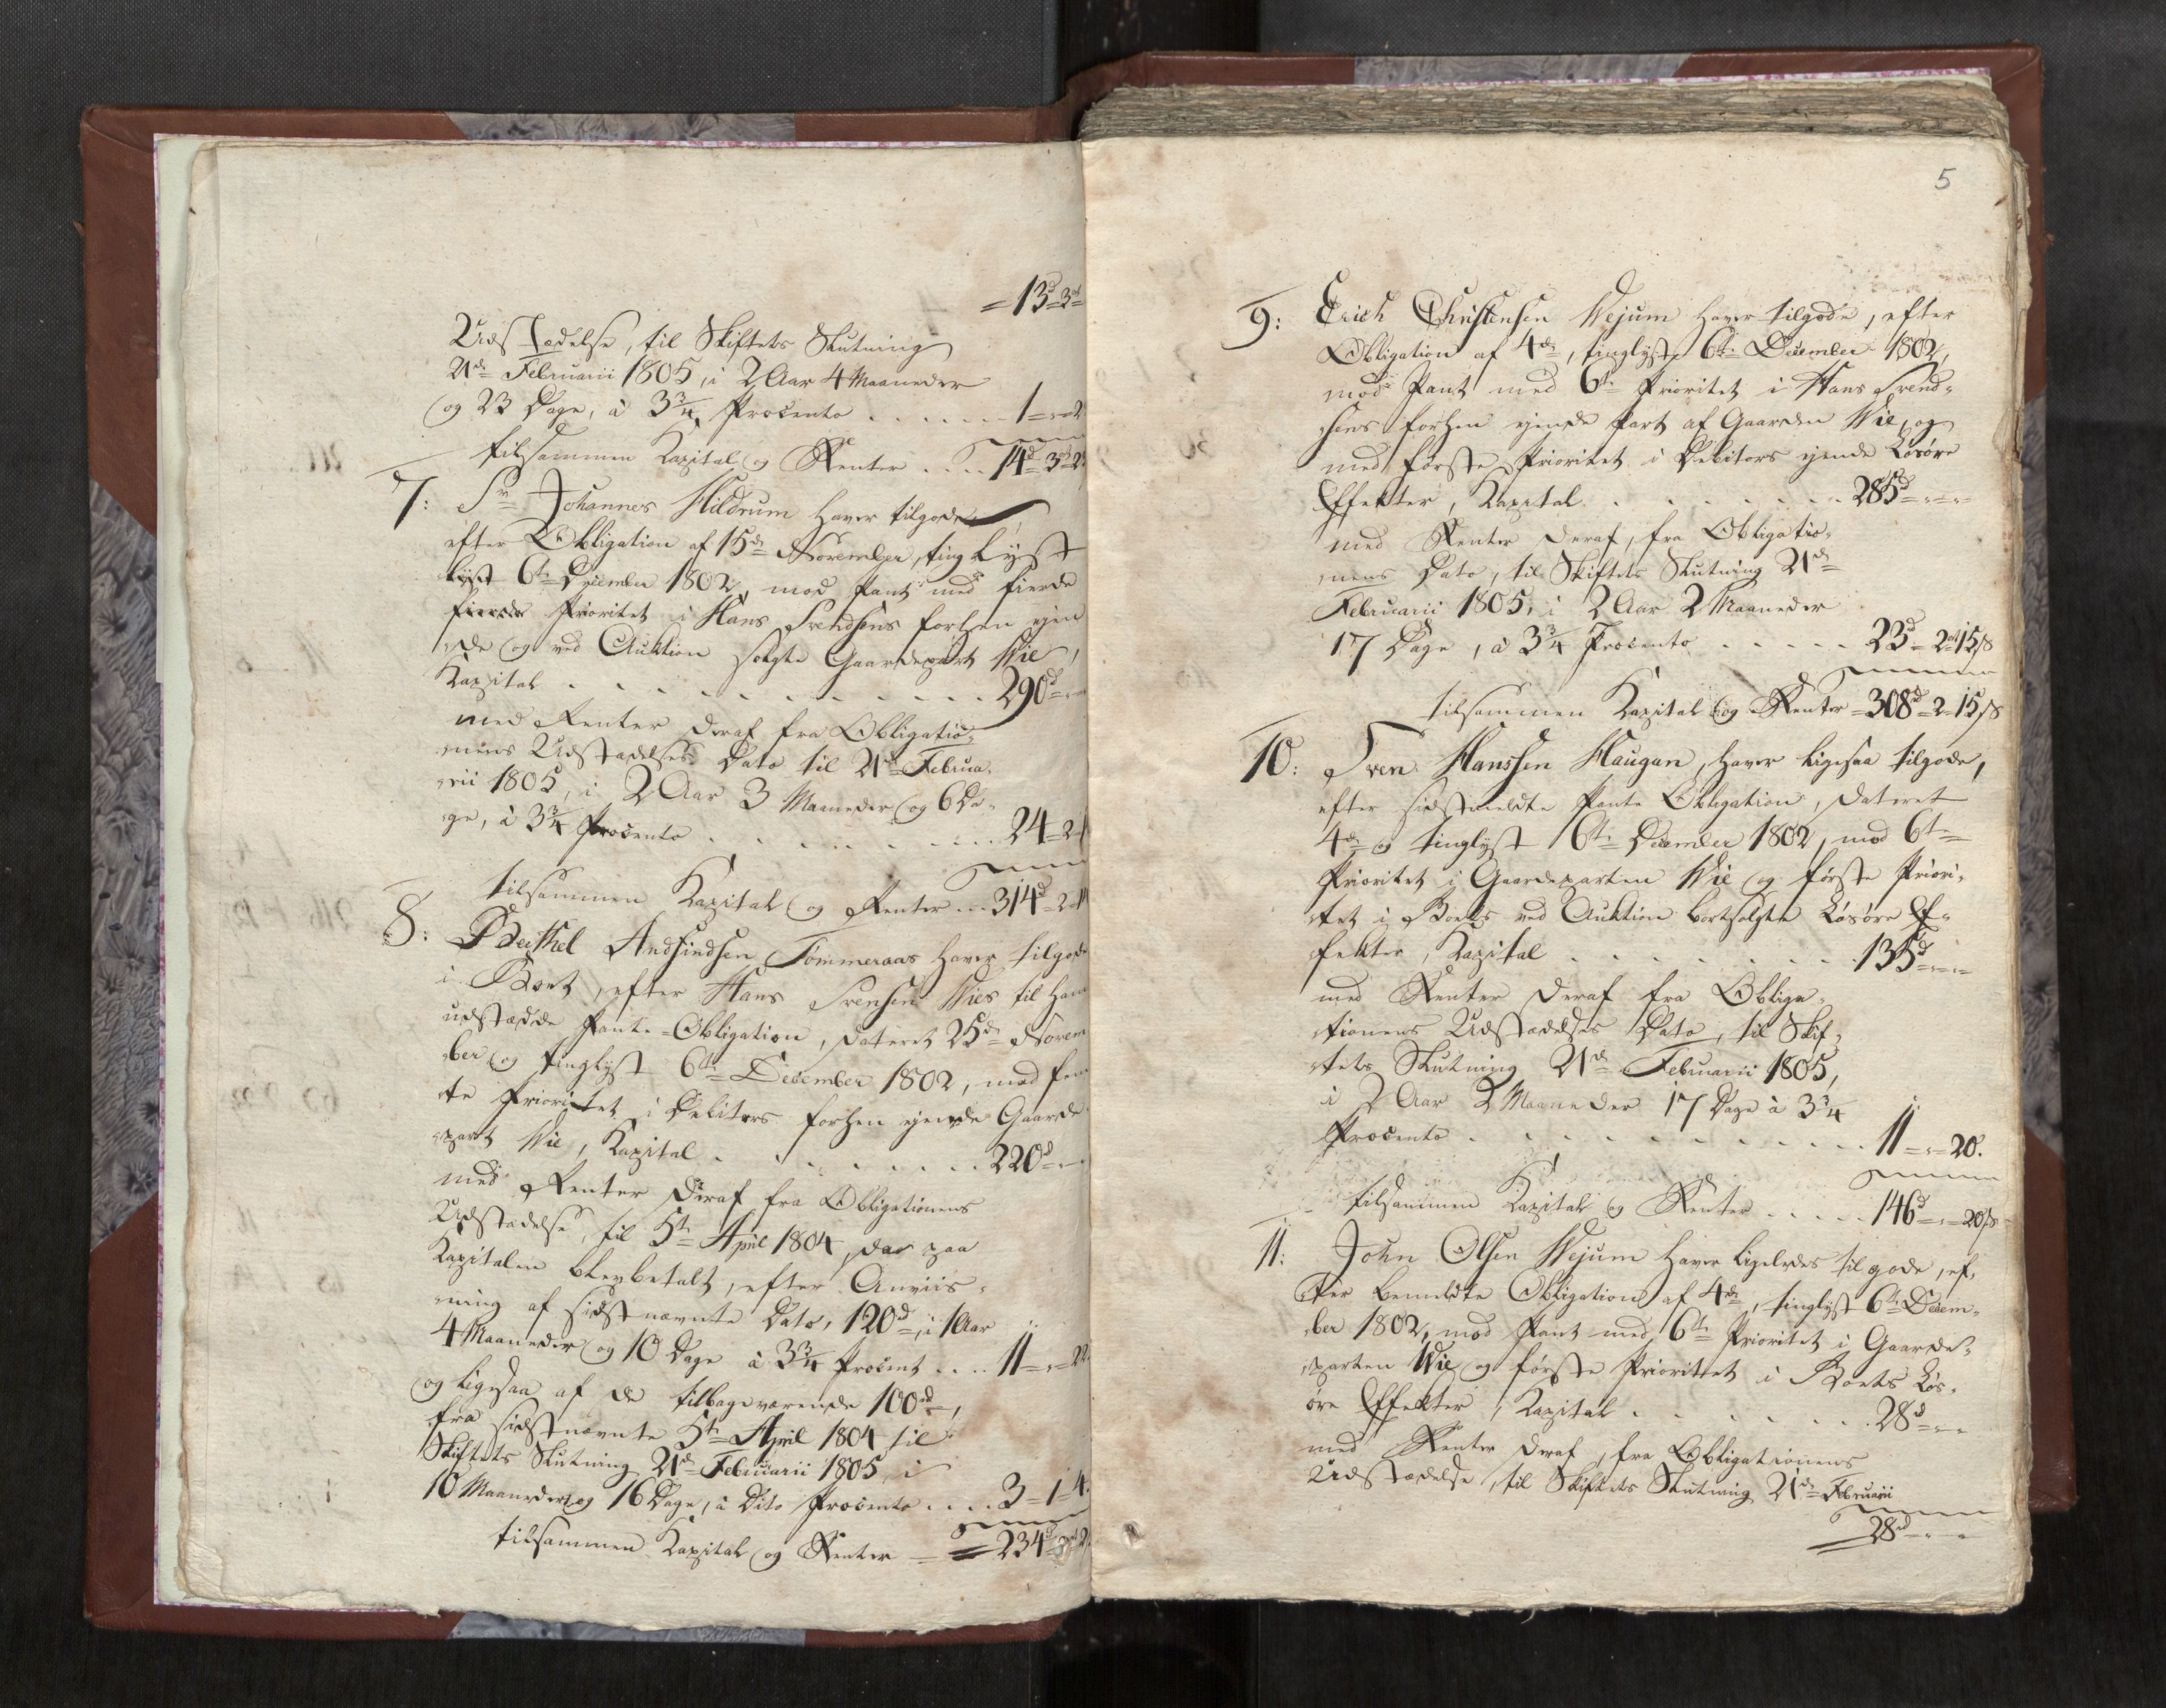 = 13d = 3ort
Udstædelse, til Skiftets Slutning
21de Februarii 1805, i 2 Aar 4 Maaneder
og 23 Dage, à 3¾ Procento . . . . . . 1 = „ = 2
tilsammen Kapital og Renter . . . . 14d = 3ort 2
7: Sr Johannes Hildrum haver tilgode
efter Obligation af 15de November, tinglyst
lyst 6te December 1802, mod Pant med fierde
fierde Prioritet i Hans Svendsens forhen ejen
„de og ved Auktion solgte Gaardepart Wie,
Kapital . . . . . . . . . . . . 290d = „
med Renter deraf fra Obligatio„
„nens Udstædelses Dato til 21de Februa„
„rii 1805, i 2 Aar 3 Maaneder og 6 Da„
„ge, à 3¾ Procento . . . . . . . . . 24 = 2 =
tilsammen Kapital og Renter . . . 314d = 2 =
8: Berthel Andfindsen Tømmeraas haver tilgode
i Boet, efter Hans Svensen Wies til ham
udstædde Pante-Obligation, dateret 25de Novem
„ber og tinglyst 6te December 1802, med fem
„te Prioritet i Debitors forhen ejende Gaarde
„part Wie, Kapital . . . . . . . . 220d = „
med Renter deraf fra Obligationens
Udstædelse, til 5te April 1804, da paa
Kapitalen blev betalt, efter Anviis„
„ning af sidstnævnte Dato, 120d, i 1 Aar
4 Maaneder og 10 Dage à 3¾ Procent . . . 11 = „ = 22
og ligesaa af de tilbageværende 100d,
fra sidstnævnte 5te April 1804 til
Skiftets Slutning 21de Februarii 1805, i
10 Maaneder og 16 Dage, à Dito Procento . . . . 3 = 1 = 4.
tilsammen Kapital og Renter = 234d
5
9: Erich Christensen Wejum haver tilgode, efter
Obligation af 4de, tinglyst 6te December 1802,
mod Pant med 6te Prioritet i Hans Svend„
„sens forhen ejende Part af Gaarden Wie, og
med første Prioritet i Debitors ejende Løsøre
Effekter, Kapital . . . . . . . . 285d = „ = „
med Renter deraf, fra Obligatio„
„nens Dato, til Skiftets Slutning 21de
Februarii 1805, i 2 Aar 2 Maaneder
17 Dage, à 3¾ Procento . . . . . 23d = 2ort 15s
tilsammen Kapital og Renter = 308d = 2 = 15s
10: Sven Hanssen Haugan, haver ligesaa tilgode,
efter sidstmeldte Pante Obligation, dateret
4de og tinglyst 6te December 1802, mod 6te
Prioritet i Gaardeparten Wie og første Priori„
„tet i Boets ved Auktion bortsolgte Løsøre Ef„
„fekter, Kapital . . . . . . . . 135d = „ = „
med Renter deraf fra Obliga„
„tionens Udstædelses Dato, til Skif„
„tets Slutning 21de Februarii 1805,
i 2 Aar 2 Maaneder 17 Dage à 3¾
Procento . . . . . . . . . . . 11 = „ = 20.
tilsammen Kapital og Renter . . . . . 146d = „ = 20s
11: John Olsen Wejum haver ligeledes til gode, ef„
„ter bemeldte Obligation af 4de, tinglyst 6te Decem„
„ber 1802, mod Pant med 6te Prioritet i Gaarde„
„parten Wie og første Prioritet i Boets Løs„
øre Effekter, Kapital . . . . . . . 28d = „ = „
med Renter deraf, fra Obligationens
Udstædelse, til Skiftets Slutning 21de Februarii
28d = „ = „